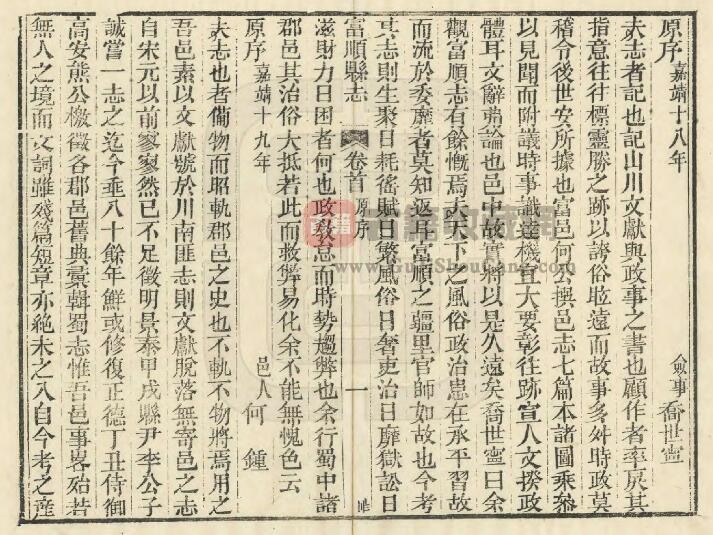 原序 嘉靖十八年 僉事 喬世寧
夫志者記也記山川文獻與政事之書也顧作者率戾其
指意往往標靈勝之跡以誇俗眩遠而故事多舛時政莫
稽令後世安所據也富邑何公撰邑志七篇本諸圖乘叅
以見聞而附議時事識達機宜大要彰往跡宣人文揆政
體耳文辭弗論也邑中故實將以是久遠矣喬世寧曰余
觀富順志有餘慨焉夫天下之風俗政治患在承平習故
而流於委靡者莫知返耳富順之疆里官師如故也今考
其志則生聚日耗徭賦日繁風俗日奢吏治日靡獄訟日
富順縣志 卷首 原序 一
滋財力日困者何也政教怠而時勢趨弊也余行蜀中諸
郡邑其治俗大抵若此而救弊易化余不能無愧色云
原序 嘉靖十九年 邑人 何鍾
夫志也者備物而昭軌郡邑之史也不軌不物將焉用之
吾邑素以文獻號於川南匪志則文獻脫落無寄邑之志
自宋元以前寥寥然已不足徵明景泰甲戌縣尹李公子
誠嘗一志之迄今垂八十餘年鮮或修復正德丁丑侍御
高安熊公檄徵各郡邑舊典彙輯蜀志惟吾邑事畧殆若
無人之境而文詞雖殘篇短章亦絕未之入自今考之產
古籍
www.GuJiShouCang.com